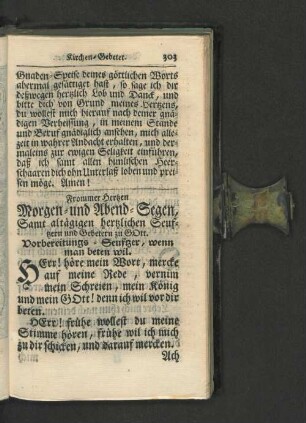 Kirchen-Gebeter. 303
Gnaden-Speise deines göttlichen Worts
abermal gesättiget hast, so sage ich dir
deßwegen hertzlich Lob und Danck, und
bitte dich von Grund meines Hertzens,
du wollest mich hierauf nach deiner gnä-
digen Verheissung, in meinem Stande
und Beruf gnädiglich ansehen, mich alle-
zeit in wahrer Andacht erhalten, und der-
maleins zur ewigen Seligkeit einführen,
daß ich samt allen himlischen Heer-
schaaren dich ohn Unterlaß loben und prei-
sen möge. Amen!
Frommer Hertzen
Morgen- und Abend-Segen,
Samt altägigen hertzlichen Seuf-
tzern und Gebetern zu GOtt.
Vorbereitungs-Seufzer, wenn
man beten wil.
HErr! höre mein Wort, mercke
auf meine Rede, vernim
mein Schreien, mein König
und mein GOtt! denn ich wil vor dir
beten.
HErr! frühe wollest du meine
Stimme hören, frühe wil ich mich
zu dir schicken, und darauf mercken.
Ach